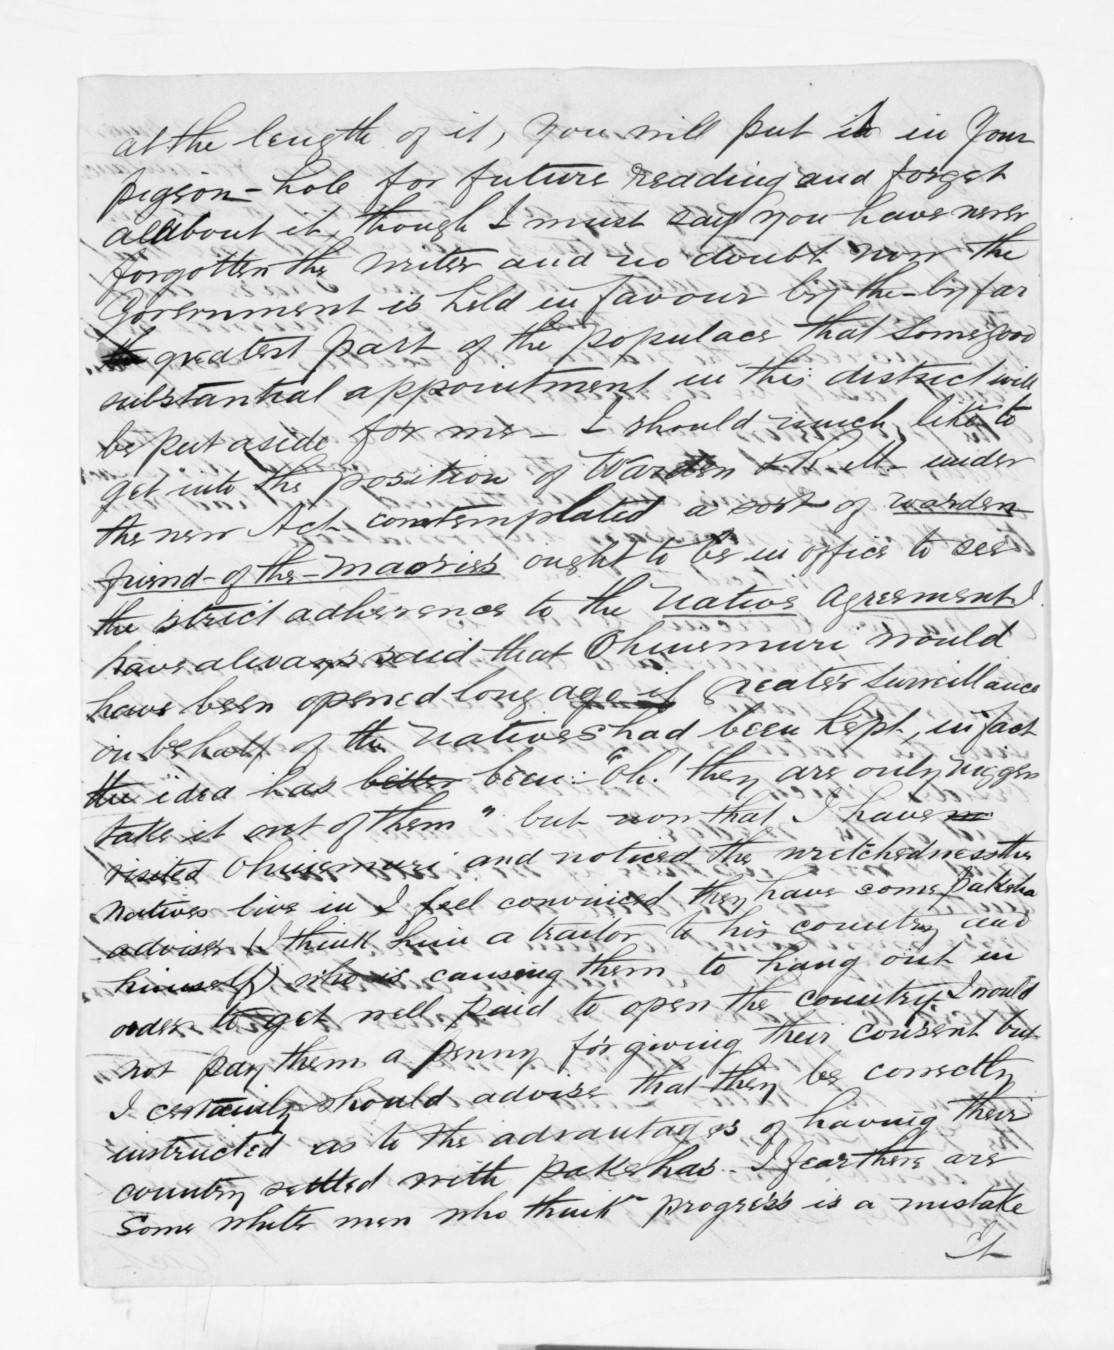 at the length of it, you will put it in your
pigeon-hole for future reading and forget
all about it, though I must say you have never
forgotten the writer and no doubt now the
Government is held in favour by the-by far
greatest part of the populace that some good
substantial appointment in this district will
be put aside for me - I should much like to
get into the position of Warden & R. M. under
the new Act contemplated a sort of warden
friend-of-the-maories ought to be in office to see
the strict adherence to the Native Agreement I
have always said that Ohinemuri would
have been opened long ago if greater surveillance
on behalf of the Natives had been kept, in fact
the idea has better been: "oh! they are only niggers
take it out of them" but now that I have
visited Ohinemuri and noticed the wretchedness the
natives live in I feel convinced they have some pakeha
adviser (I think him a traitor to his country and
himself) who is causing them to hang out in
order to get well paid to open the country. I would
not pay them a penny for giving their consent but
I certainly should advise that they be correctly
instructed as to the advantages of having their
country settled with pakehas. I fear there are
some white men who think progress is a mistake
It